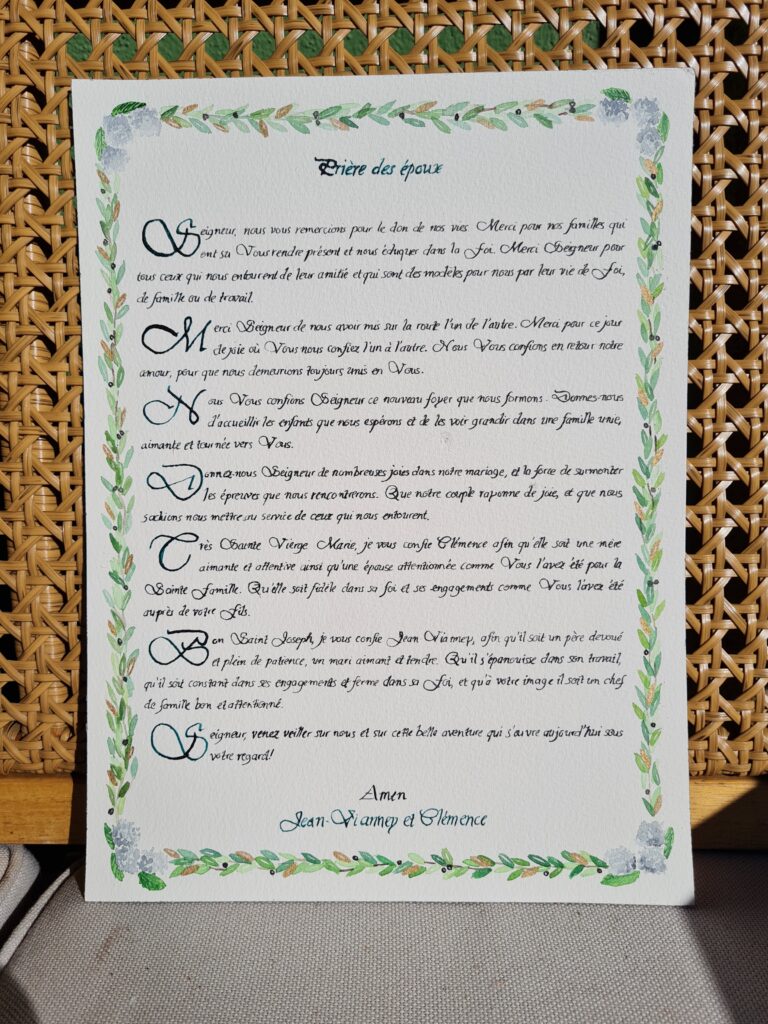 Prière des époux
Seigneur, nous vous remercions pour le don de nos vies Merci pour nos familles qui
ont su Vous rendre présent et nous éduquer dans la Foi. Merci Seigneur pour
tous ceux qui nous entourent de leur amitié et qui sont des modèles pour nous par leur vie de Foi,
de famille ou de travail.
Merci Seigneur de nous avoir mis sur la route l'un de l'autre. Merci pour ce jour
de joie où Vous nous confiez l'un à l'autre. Nous Vous confions en retour notre
amour, pour que nous demeurions toujours unis en Vous.
Nous Vous confions Seigneur ce nouveau foyer que nous formons. Donnez-nous
d'accueillir les enfants que nous espérons et de les voir grandir dans une famille unie,
aimante et tournée vers Vous.
Donnez-nous Seigneur de nombreuses joies dans notre mariage, et la force de surmonter
les épreuves que nous rencontrerons. Que notre couple rayonne de joie, et que nous
sachions nous mettre au service de ceux qui nous entourent.
Très Sainte Vierge Marie, je vous confie Clémence afin qu'elle soit une mère
aimante et attentive ainsi qu'une épouse attentionnée comme Vous l'avez été pour la
Sainte Famille. Qu'elle soit fidèle dans sa foi et ses engagements comme Vous l'avez été
auprès de votre Fils.
Bon Saint Joseph, je vous confie Jean Vianney, afin qu'il soit un père dévoué
et plein de patience, un mari aimant et tendre. Qu'il s'épanouisse dans son travail,
qu'il soit constant dans ses engagements et ferme dans sa Foi, et qu'à votre image il soit un chef
de famille bon et attentionné.
Seigneur, venez veiller sur nous et sur cette belle aventure qui s'ouvre aujourd'hui sous
votre regard!
Amen
Jean-Vianney et Clémence